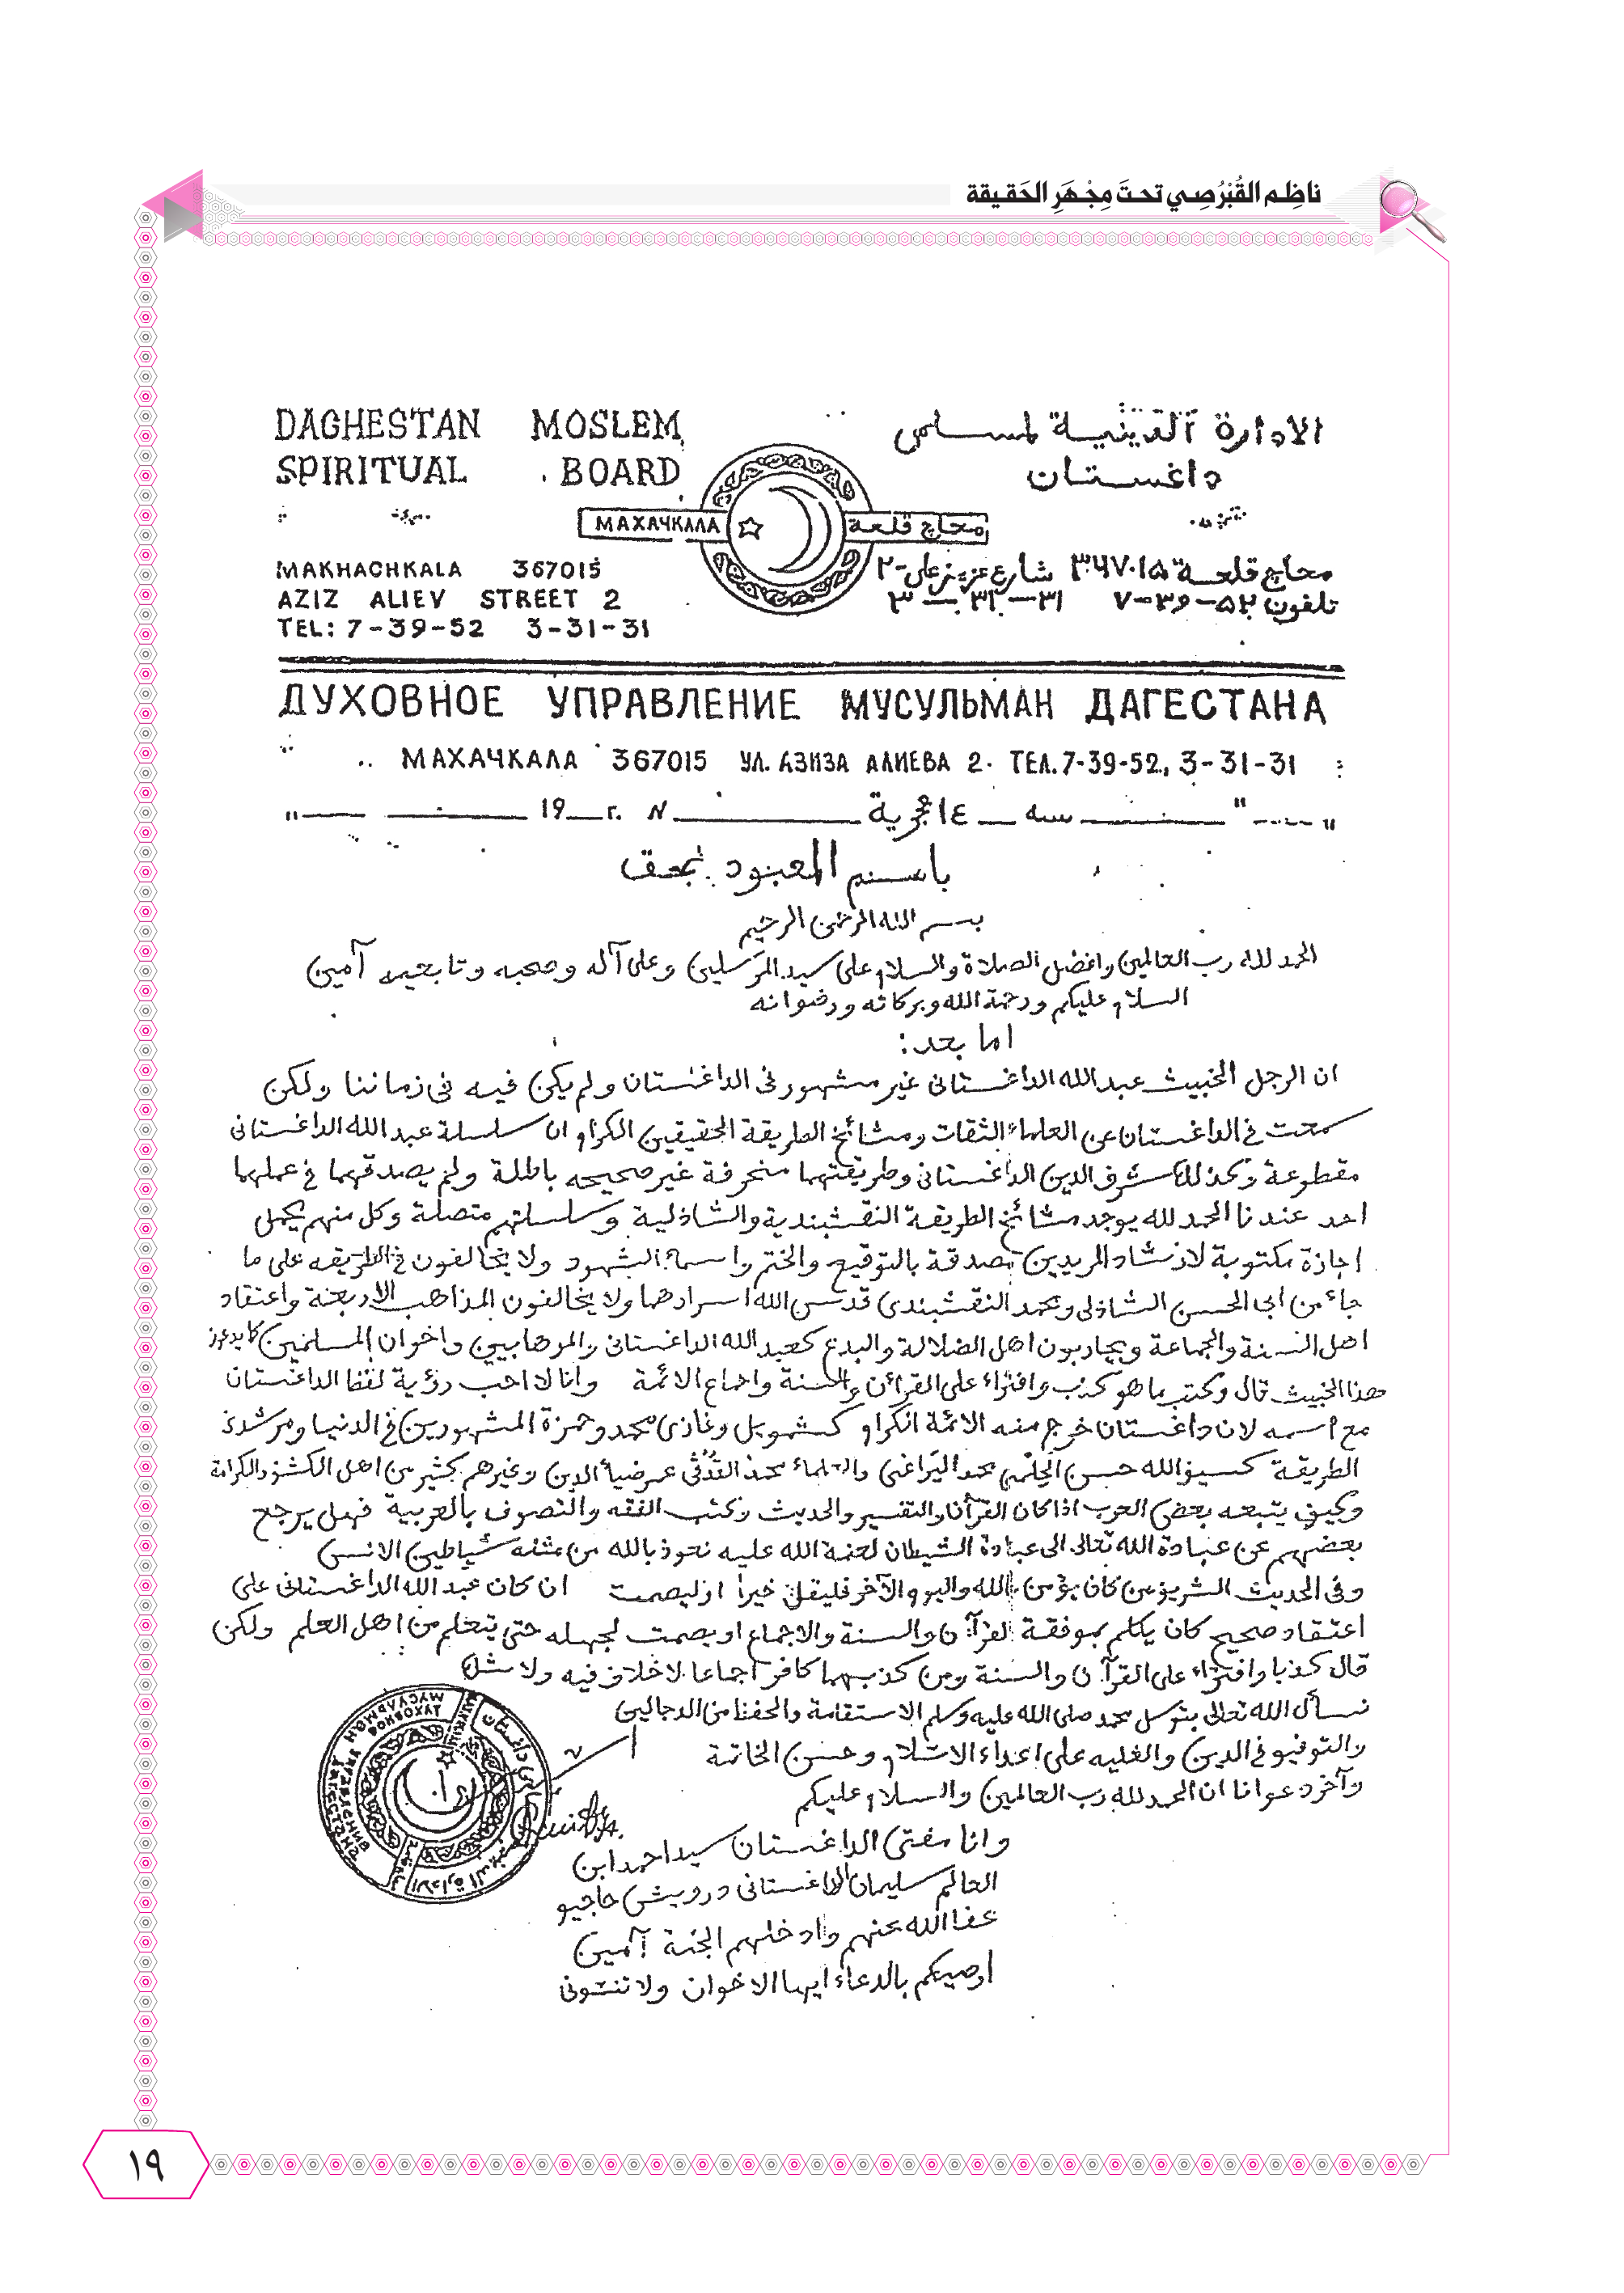 ناظِم القُبْرُصِي تحتَ مِجْهَرِ الحَقيقة
DAGHESTAN MOSLEM
SPIRITUAL BOARD
الادارة الدينية لمسلمى
داغستان
МАХАЧКАЛА
محاج قلعة
MAKHACHKALA 367015
AZIZ ALIEV STREET 2
TEL: 7-39-52 3-31-31
محاج قلعة ٣٦٧٠١۵ شارع عزيز على-٢
تلفون ۵٢-٣٩-٧ ٣١-٣١-٣
ДУХОВНОЕ УПРАВЛЕНИЕ МУСУЛЬМАН ДАГЕСТАНА
МАХАЧКАЛА 367015 УЛ. АЗИЗА АЛИЕВА 2. ТЕЛ. 7-39-52, 3-31-31
" " 19 г. N ١٤ هجرية سنه " "
باسم المعبود بحق
بسم الله الرحمن الرحيم
الحمد لله رب العالمين وافضل الصلاة والسلام على سيد المرسلين وعلى آله وصحبه وتابعيه آمين
السلام عليكم ورحمة الله وبركاته ورضوانه
اما بعد:
ان الرجل الخبيث عبد الله الداغستانى غير مشهور فى الداغستان ولم يكن فيه فى زماننا ولكن
سمعت فى الداغستان عن العلماء الثقات ومشائخ الطريقة الحقيقين الكرام ان سلسلة عبد الله الداغستانى
مقطوعة وكذلك شرف الدين الداغستانى وطريقتهما منحرفة غير صحيحه باطلة ولم يصدقهما فى عملهما
احد عندنا الحمد لله يوجد مشائخ الطريقة النقشبندية والشاذلية وسلسلتهم متصلة وكل منهم يحمل
اجازة مكتوبة لارشاد المريدين تصدقة بالتوقيع والختم واسماء الشهود ولا يخالفون فى الطريقه على ما
جاء من ابى الحسن الشاذلى ومحمد النقشبندى قدس الله اسرارهما ولا يخالفون المذاهب الاربعة واعتقاد
اهل السنة والجماعة ويحاربون اهل الضلالة والبدع كعبد الله الداغستانى والوهابيين واخوان المسلمين
هذا الخبيث قال وكتب ما هو كذب وافتراء على القرآن والسنة واجماع الائمة وانا لا احب رؤية لفظ الداغستان
مع اسمه لان داغستان خرج منه الائمة الكرام كشمويل وغازى محمد وحمزة المشهورين فى الدنيا ومرشدى
الطريقة كسيف الله حسن الحلمى محمد اليراغى والعلماء محمد القدقى عمر ضياء الدين وغيرهم كثير من اهل الكشف والكرامة
وكيف يتبعه بعض العرب اذا كان القرآن والتفسير والحديث وكتب الفقه والتصوف بالعربية فهل يرجع
بعضهم عن عبادة الله تعالى الى عبادة الشيطان لعنة الله عليه نعوذ بالله من مثله شياطين الانس
وفى الحديث الشريف من كان يؤمن بالله واليوم الآخر فليقل خيرا او ليصمت ان كان عبد الله الداغستانى على
اعتقاد صحيح كان يكلم بموفقة القرآن والسنة والاجماع او يصمت لجهله حتى يتعلم من اهل العلم ولكن
قال كذبا وافتراء على القرآن والسنة ومن كذبهما كافر اجماعا لا خلاف فيه ولا شك
نسأل الله تعالى بتوسل محمد صلى الله عليه وسلم الاستقامة والحفظ من الدجالين
والتوفيق فى الدين والغلبه على اعداء الاسلام وحسن الخاتمة
وآخر دعوانا ان الحمد لله رب العالمين والسلام عليكم
وانا مفتى الداغستان سيد احمد ابن
العالم سليمان الداغستانى درويش حاجيو
عفا الله عنهم وادخلهم الجنة آمين
اوصيكم بالدعاء ايها الاخوان ولا تنسونى
١٩